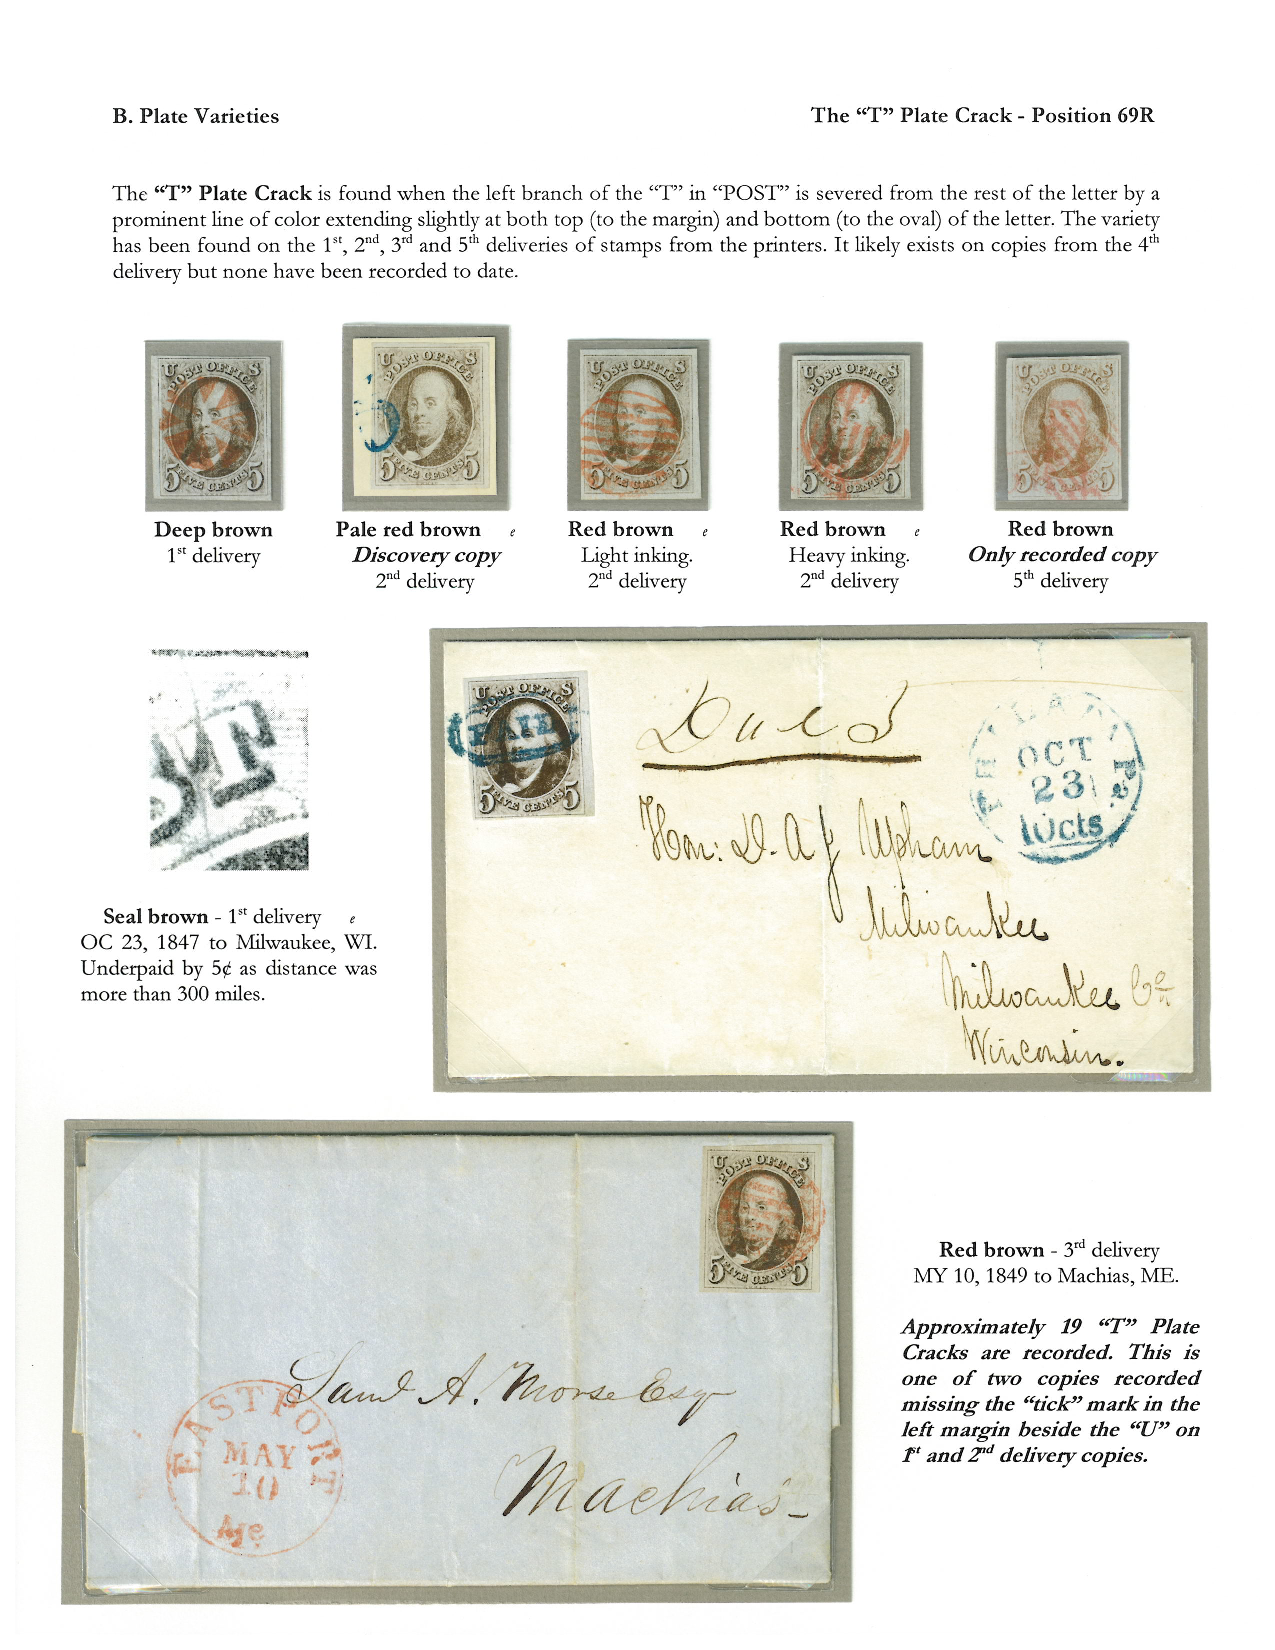 B. Plate Varieties
The “T” Plate Crack - Position 69R
The “T” Plate Crack is found when the left branch of the “T” in “POST” is severed from the rest of the letter by a
prominent line of color extending slightly at both top (to the margin) and bottom (to the oval) of the letter. The variety
has been found on the 1st, 2nd, 3rd and 5th deliveries of stamps from the printers. It likely exists on copies from the 4th
delivery but none have been recorded to date.
U S
POST OFFICE
5 FIVE CENTS 5
U S
POST OFFICE
5 FIVE CENTS 5
U S
POST OFFICE
5 FIVE CENTS 5
U S
POST OFFICE
5 FIVE CENTS 5
U S
POST OFFICE
5 FIVE CENTS 5
Deep brown
1st delivery
Pale red brown e
Discovery copy
2nd delivery
Red brown e
Light inking.
2nd delivery
Red brown e
Heavy inking.
2nd delivery
Red brown
Only recorded copy
5th delivery
ST
Seal brown - 1st delivery e
OC 23, 1847 to Milwaukee, WI.
Underpaid by 5¢ as distance was
more than 300 miles.
U S
POST OFFICE
PAID
5 FIVE CENTS 5
Due 5
OCT
23
10cts
Hon: D. A. J. Upham
Milwaukee
Milwaukee Co
Winconsin.
U S
POST OFFICE
5 FIVE CENTS 5
Saml A. Morse Esqr
Machias-
EASTPORT
MAY
10
Me
Red brown - 3rd delivery
MY 10, 1849 to Machias, ME.
Approximately 19 “T” Plate
Cracks are recorded. This is
one of two copies recorded
missing the “tick” mark in the
left margin beside the “U” on
1st and 2nd delivery copies.